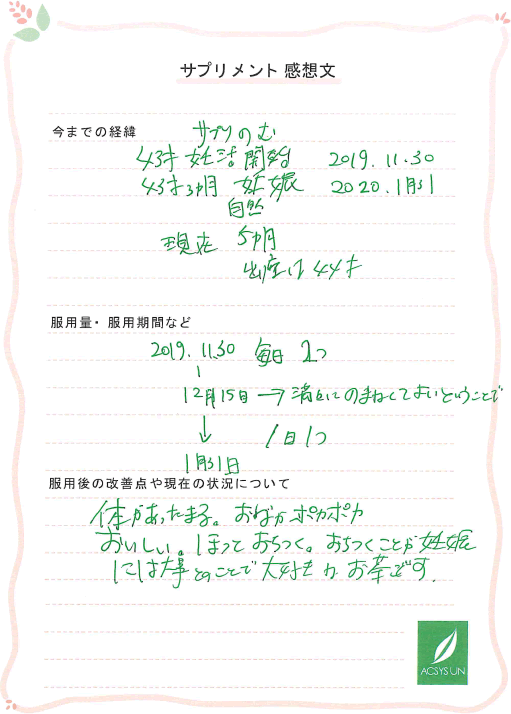 サプリメント 感想文
今までの経緯
サプリのむ
43才 妊活 開始 2019.11.30
43才3カ月 妊娠 2020.1月31
自然
現在 5カ月
出産は44才
服用量・服用期間など
2019.11.30 毎日 2つ
12月15日 → にのまなくてよいということで
↓ 1日1つ
1月31日
服用後の改善点や現在の状況について
体があったまる。おなかポカポカ
おいしい。ほっておちつく。おちつくことが妊娠
には大事とのことで大好きな お茶です.
ACSYS UN